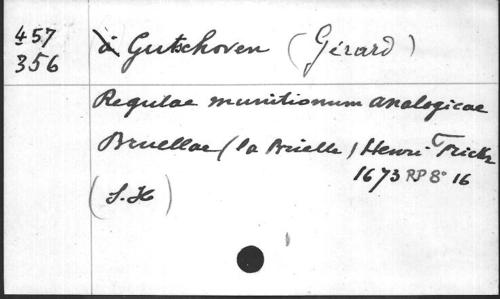 457 à Gutschoven (Gérard)
356
Regulae munitionum analogicae
Bruellae (la Brielle) Henri Frickx
1673 RP 8° 16
(S.H)